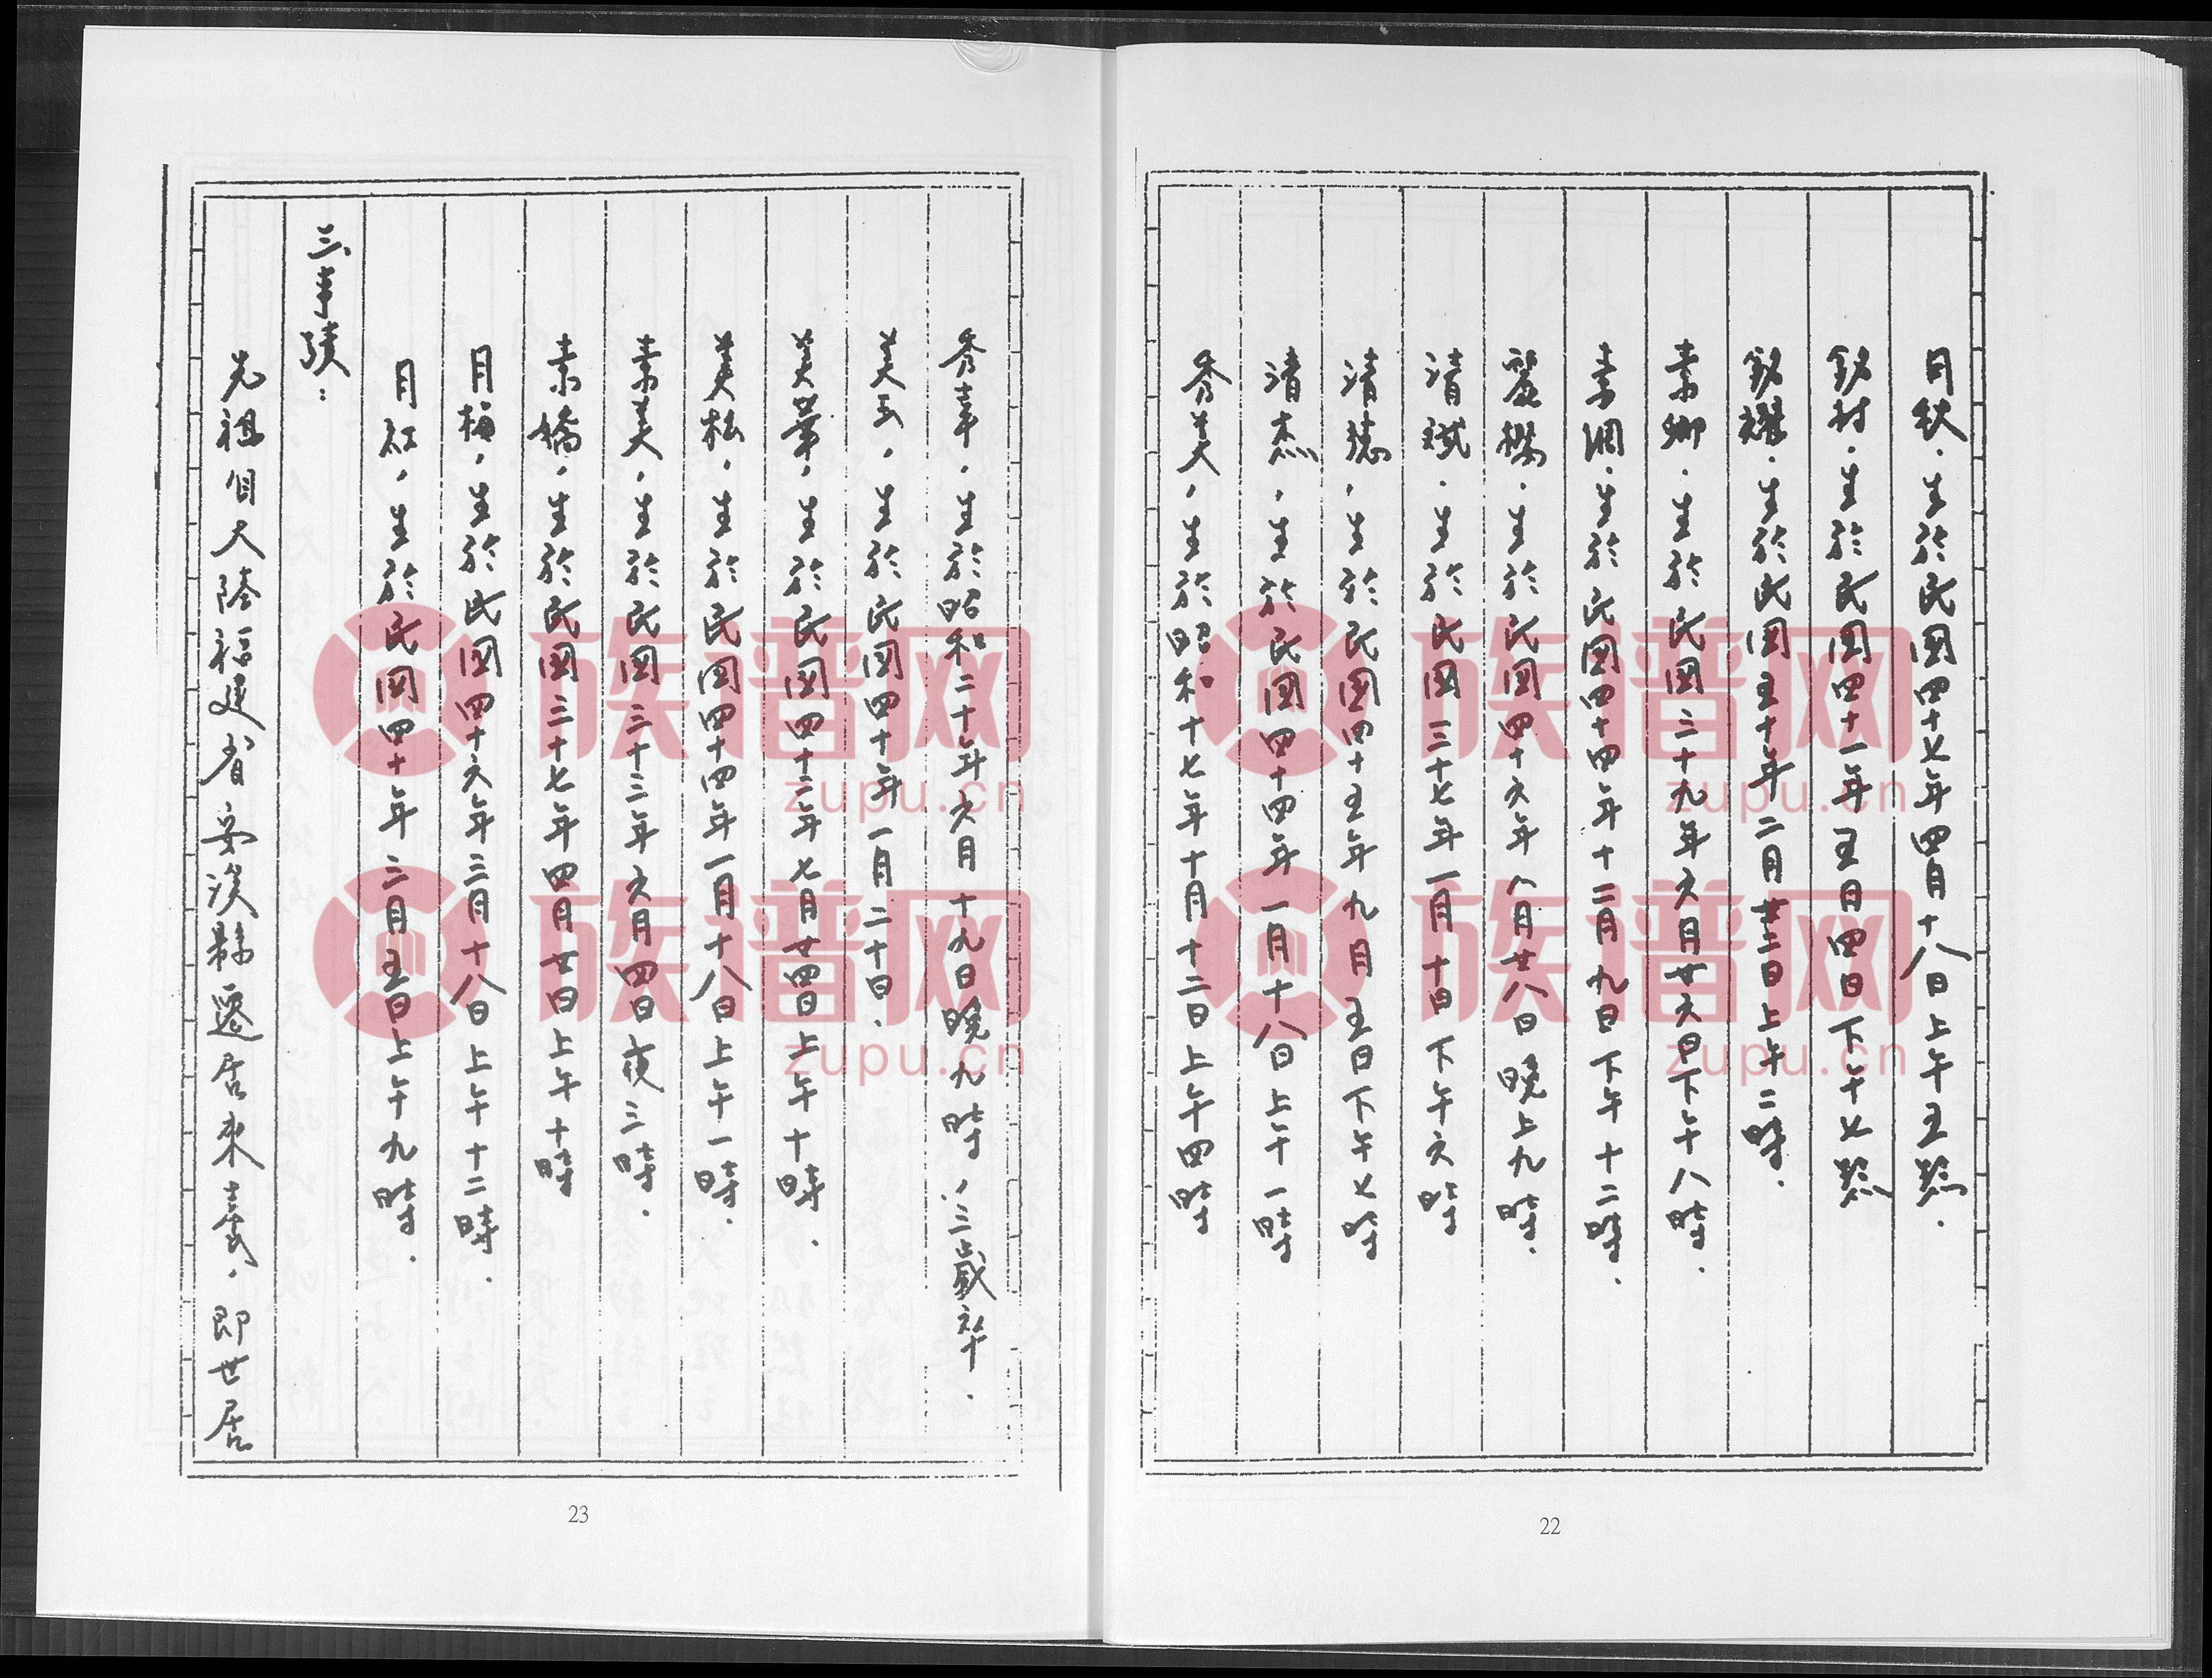 月秋．生於民國四十七年四月十八日上午五點．
銘村．生於民國四十一年五月四日下午七點
銘耀．生於民國五十年二月廿三日上午二時．
素鄉．生於民國三十九年六月廿六日下午八時．
素綢．生於民國四十四年十二月九日下午十二時．
麗櫻．生於民國四十六年八月廿八日晚上九時．
清斌．生於民國三十七年一月十日下午六時
清慧．生於民國四十五年九月五日下午七時
清杰．生於民國四十四年一月十八日上午一時
秀美．生於昭和十七年十月十二日上午四時
22
秀幸．生於昭和二十年六月十九日晚九時，三歲卒．
美玉．生於民國四十年一月二十日．
美華．生於民國四十二年七月廿四日上午十時．
美松．生於民國四十四年一月十八日上午一時．
素美．生於民國三十三年六月四日夜三時．
素橋．生於民國三十七年四月廿日上午十時
月梅．生於民國四十六年三月十八日上午十二時．
月紅．生於民國四十年二月五日上午九時．
三、業績：
先祖自大陸福建省安溪縣遷居來臺，即世居
23
族谱网
zupu.cn
族谱网
zupu.cn
族谱网
zupu.cn
族谱网
zupu.cn